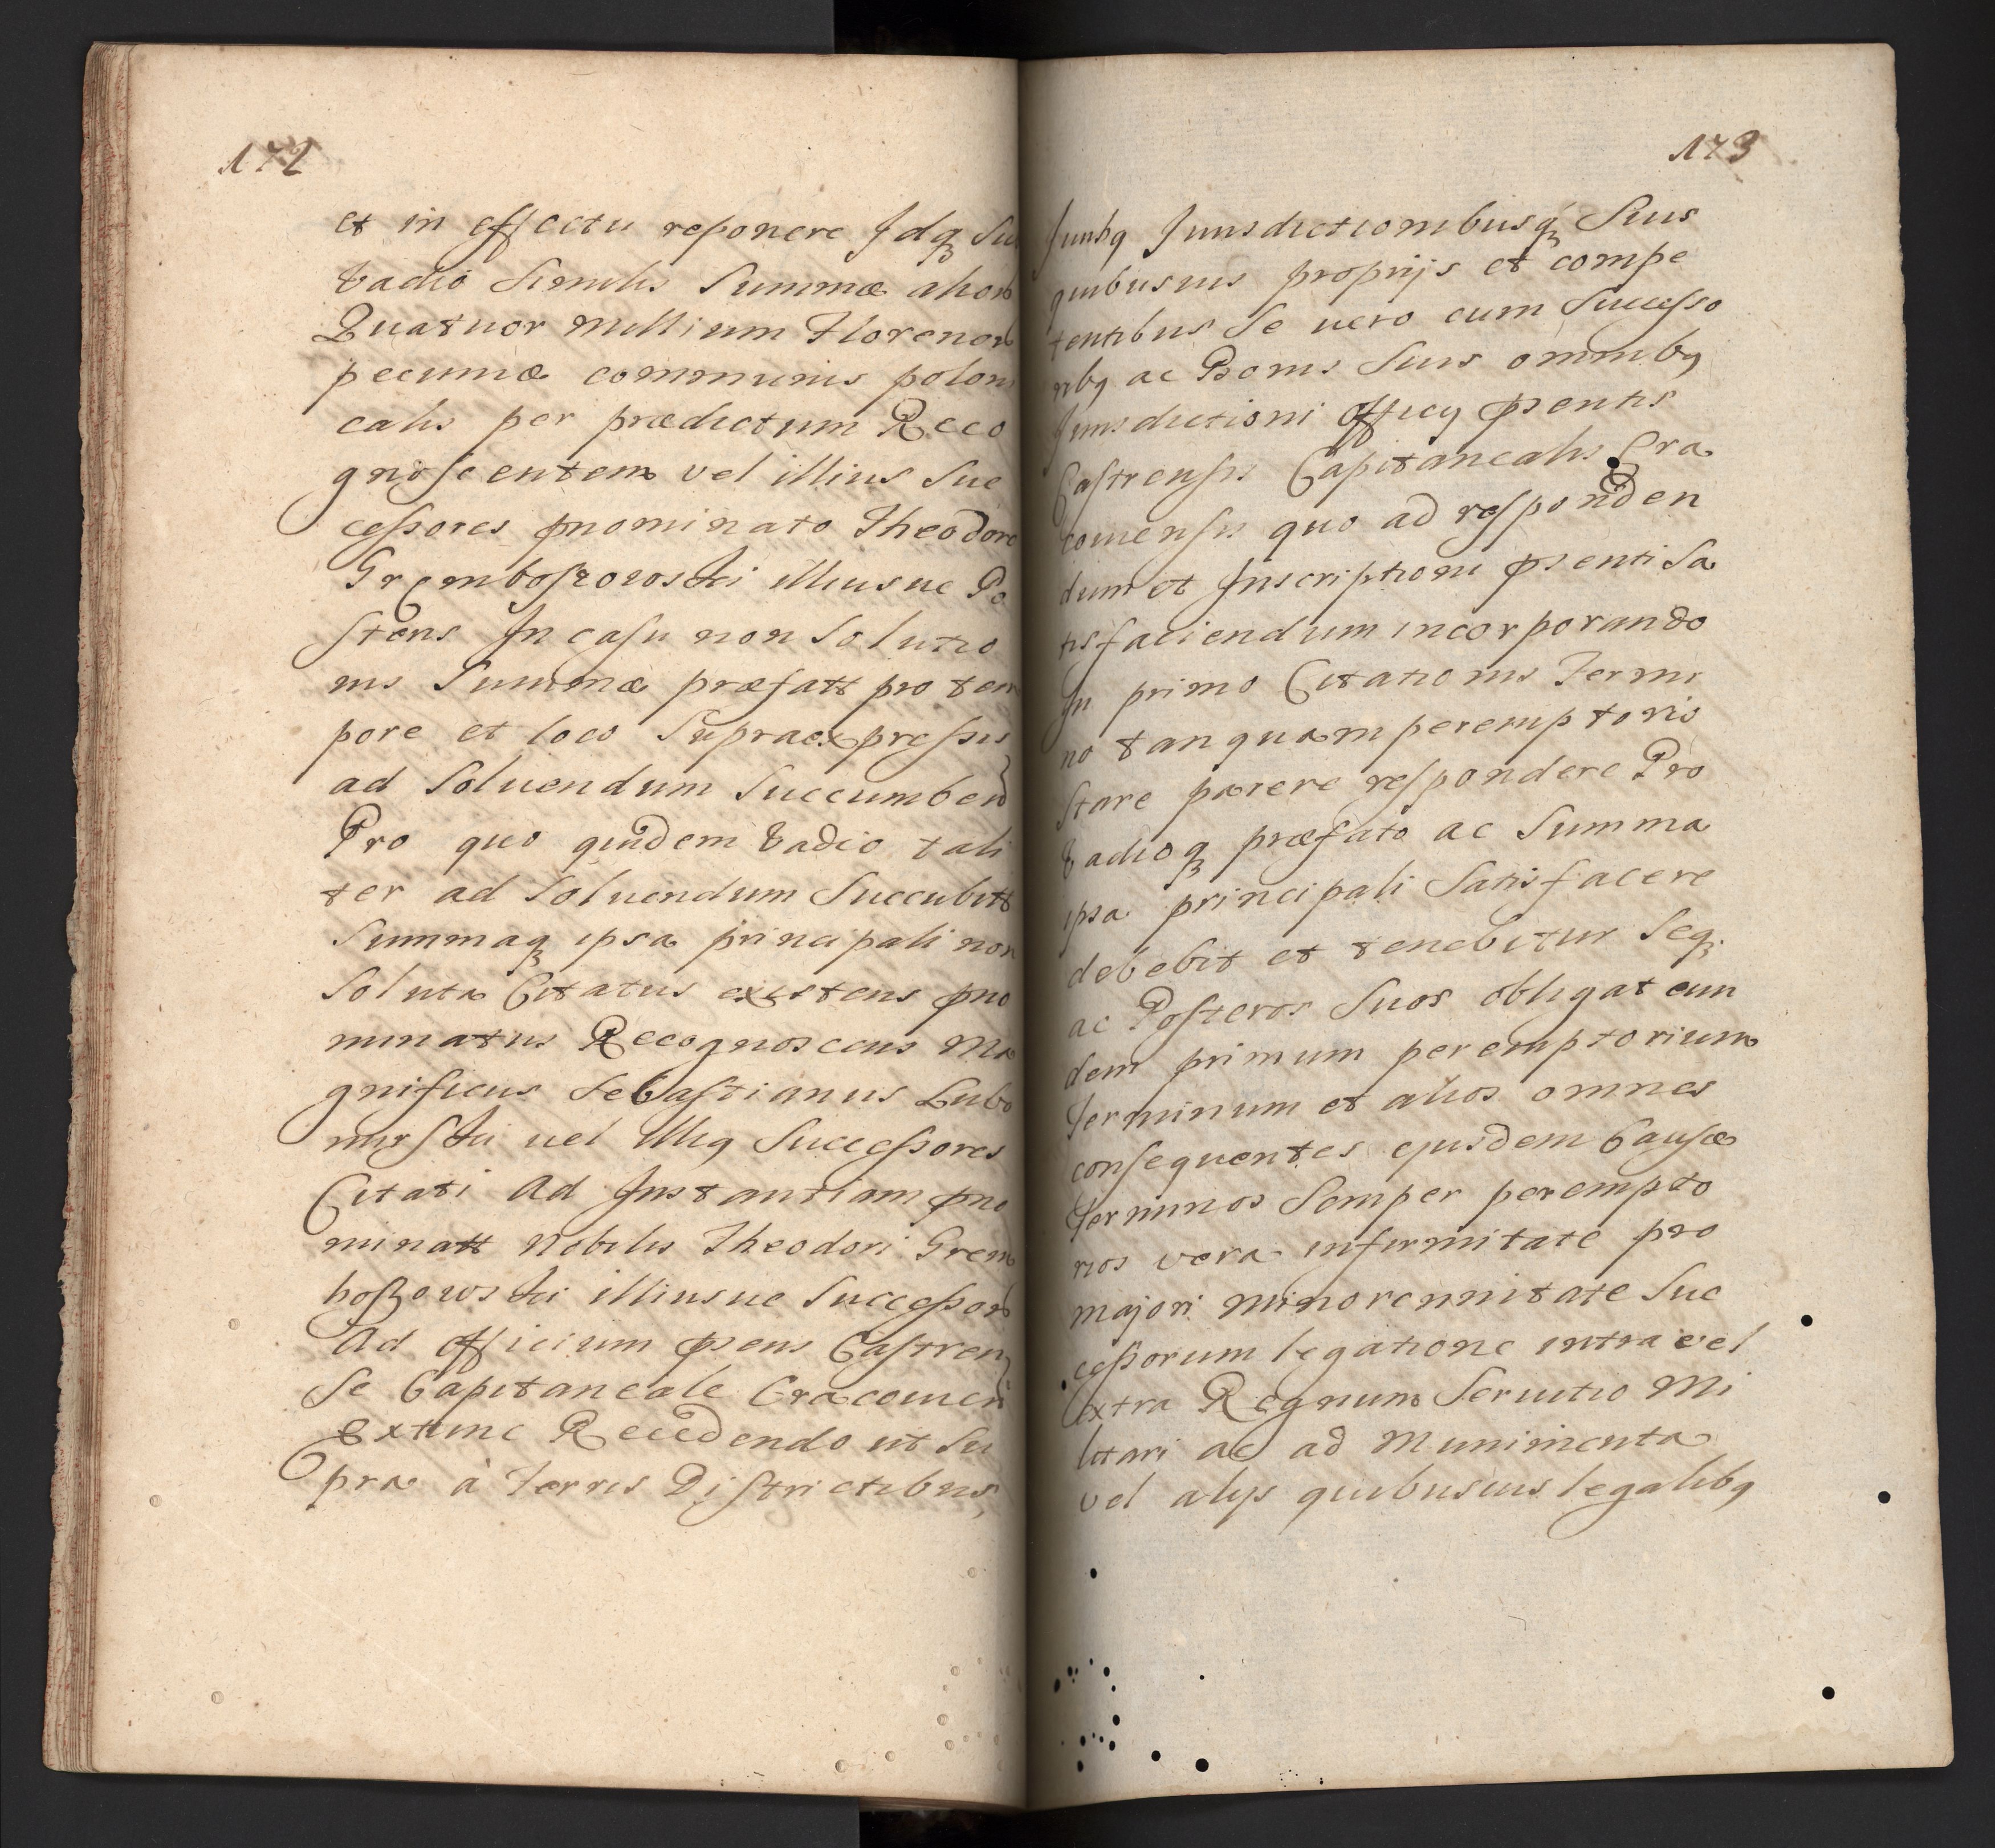 172
et in effectu reponere Idq₃ su
vadio similis summæ alior
Quatuor Millium Florenor
pecuniæ communis poloni
calis per prædictum Reco
gnoscentem vel illius suc
cessores pnominato Theodoro
Gremboszowski illiusue Po
steris In casu non solutio
nis summæ præfatt pro tem
pore et loco supraexpressis
ad soluendum succumben
Pro quo quidem vadio tali
ter ad soluendum succubitt
summaq₃ ipsa principali non
soluta Citatus existens pno
minatus Recognoscens Ma
gnificus Sebastianus Lubo
mirski uel illiq Successores
Citati Ad Instantiam pno
minatt Nobilis Theodori Grem
boszowski illiusue successor
Ad officium psens Castren
se Capitaneale Cracouien
Extunc Recedendo ut su
pra à Terris Districtibus,
173
Juribq Jurisdictionibusq₃ suis
quibusuis proprijs et compe
tentibus se uero cum successo
ribq ac Bonis suis omnibq
Jurisdictioni officij psentis
Castrensis Capitanealis Cra
couiensis quo ad responden
dum et Inscriptioni psenti sa
tisfaciendum incorporando
In primo Citationis Termi
no tanquam peremptorio
stare parere respondere Pro
vadioq₃ præfato ac summa
ipsa principali satisfacere
debebit et tenebitur seq₃
ac Posteros suos obligat eun
dem primum peremptorium
Terminum et alios omnes
consequentes ejusdem Causæ
Terminos semper perempto
rios vera infirmitate pro
majori minorennitate suc
cessorum legatione intra vel
extra Regnum seruitio Mi
litari ac ad Munimenta
vel alijs quibusuis legalibq